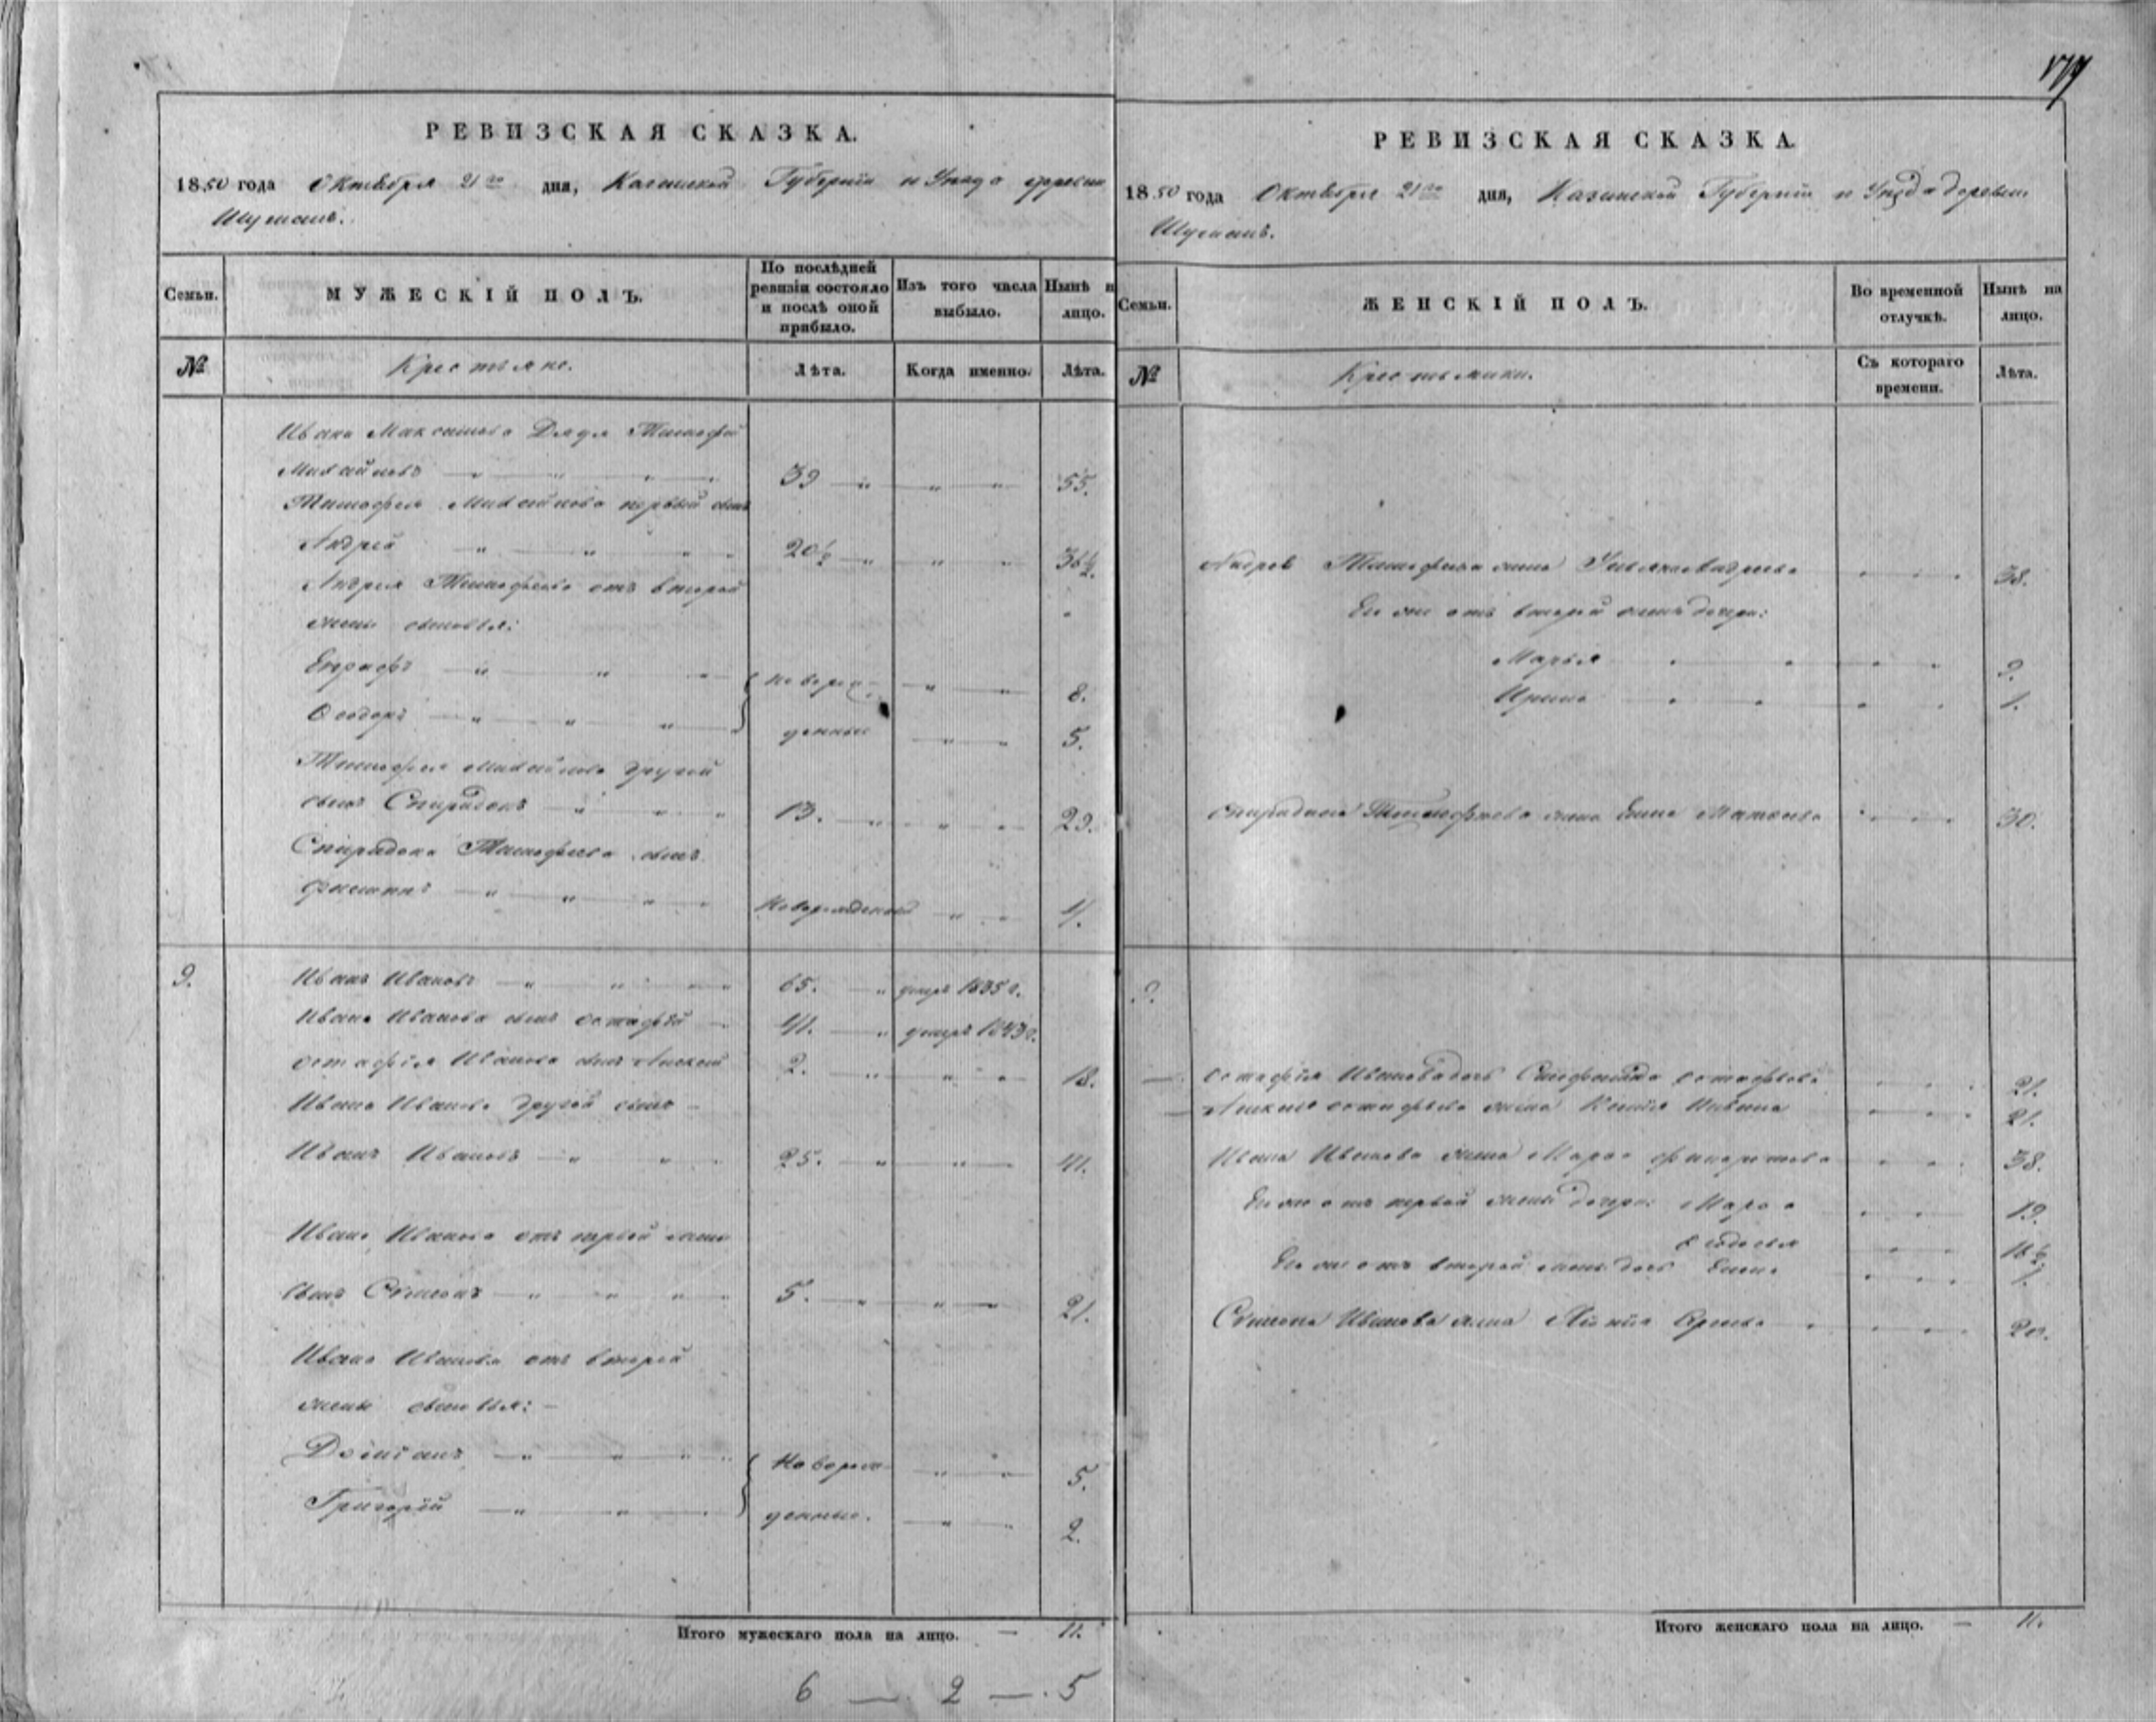 177
РЕВИЗСКАЯ СКАЗКА.
1850 года Октября 21го дня, Казанской Губерніи и Уѣзда деревни
Шуманъ.
Семьи.
МУЖЕСКІЙ ПОЛЪ.
По послѣдней ревизіи состояло и послѣ оной прибыло.
Изъ того числа выбыло.
Нынѣ н лицо.
№
Крестьяне.
Лѣта.
Когда именно.
Лѣта.
Ивана Максимова Дядя Тимофей
Михайловъ 39 55.
Тимофея Михайлова первый сынъ
Андрей 20½ 36½.
Андрея Тимофеева отъ второй
жены сыновья:
Евграфъ новорож- 8.
Ѳеодоръ денные 5.
Тимофея Михайлова другой
сынъ Спиридонъ 13. 29.
Спиридона Тимофеева сынъ
новорожденный 1/.
9. Иванъ Ивановъ 65. умеръ 1835 г.
Ивана Иванова сынъ Остафій 41. умеръ 1843 г.
Остафія Иванова сынъ Алексей 2. 18.
Ивана Иванова другой сынъ
Иванъ Ивановъ 25. 41.
Ивана Иванова отъ первой жены
сынъ Семенъ 5. 21.
Ивана Иванова отъ второй
жены сыновья:
Доміанъ Новорож- 5.
Григорій денные. 2.
Итого мужескаго пола на лицо. 11.
6 — 2 — 5
РЕВИЗСКАЯ СКАЗКА.
1850 года Октября 21го дня, Казанской Губерніи и Уѣзда деревни
Шуманъ.
Семьи.
ЖЕНСКІЙ ПОЛЪ.
Во временной отлучкѣ.
Нынѣ на лицо.
№
Крестьянки.
Съ котораго времени.
Лѣта.
Андрея Тимофеева жена Ульяна Андреева 38.
Его же отъ второй жены дочери:
Марья 9.
Ирина 1.
Спиридона Тимофеева жена Елена Матвеева 30.
9.
Остафія Иванова дочь Остафьева 21.
Алексея Остафьева жена 21.
Ивана Иванова жена 38.
Его же отъ первой жены дочери: 19.
Ѳедосья 16½.
Его же отъ второй жены дочь Елена 1.
Семена Иванова жена 20.
Итого женскаго пола на лицо. — 11.